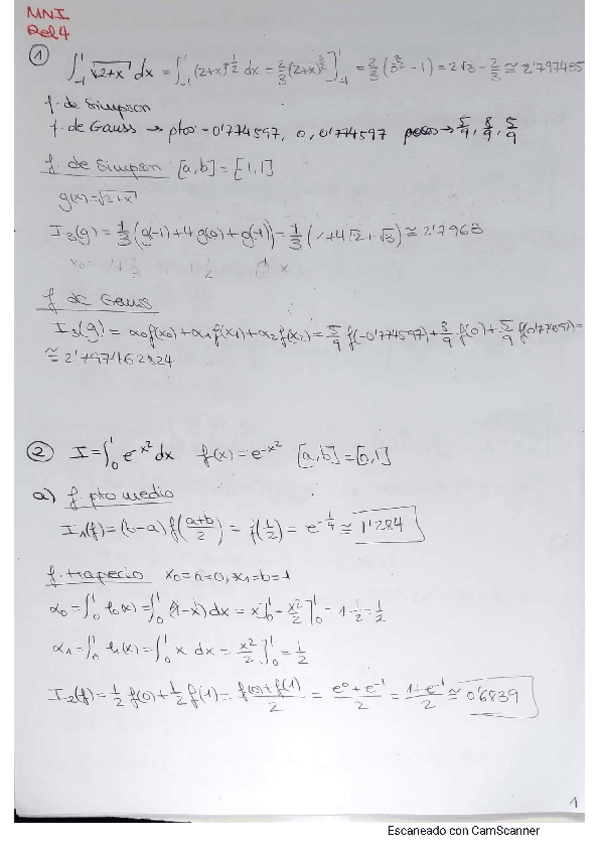 MNI
Rel 4
① ∫₋₁¹ √2+x dx = ∫₋₁¹ (2+x)^½ dx = 2/3 (2+x)^3/2 ]₋₁¹ = 2/3 (3^3/2 − 1) = 2√3 − 2/3 ≅ 2'797435
f. de Simpson
f. de Gauss → ptos −0'774597, 0, 0'774597 pesos → 5/9, 8/9, 5/9
f. de Simpson [a,b] = [-1,1]
g(x) = √2+x
I₃(g) = 1/3 (g(-1) + 4g(0) + g(1)) = 1/3 (1+4√2+√3) ≅ 2'7963
f de Gauss
I₃(g) = α₀f(x₀) + α₁f(x₁) + α₂f(x₂) = 5/9 f(−0'774597) + 8/9 f(0) + 5/9 f(0'774597) =
② I = ∫₀¹ e^-x² dx f(x) = e^-x² [a,b] = [0,1]
a) f pto medio
I₁(f) = (b−a) f(a+b/2) = f(1/2) = e^-1/4 ≅ 1'284
f. trapecio x₀=a=0, x₁=b=1
α₀ = ∫₀¹ l₀(x) = ∫₀¹ (1−x) dx = x]₀¹ − x²/2 ]₀¹ = 1 − 1/2 = 1/2
α₁ = ∫₀¹ l₁(x) = ∫₀¹ x dx = x²/2 ]₀¹ = 1/2
I₂(f) = 1/2 f(0) + 1/2 f(1) = f(0)+f(1)/2 = e⁰+e⁻¹/2 = 1+e⁻¹/2 ≅ 0'6839
1
Escaneado con CamScanner